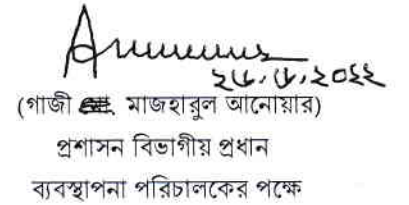 ২৮.৮.২০২২
(গাজী মাজহারুল আনোয়ার)
প্রশাসন বিভাগীয় প্রধান
ব্যবস্থাপনা পরিচালকের পক্ষে